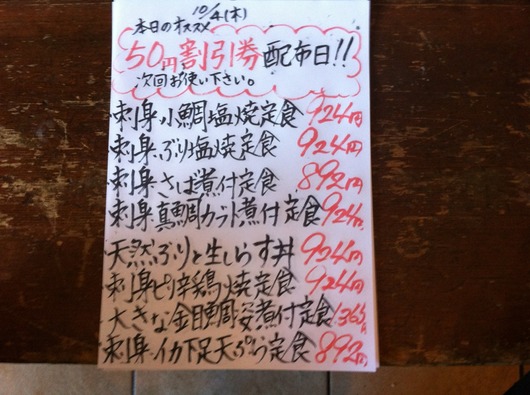 10/4(木)
本日のオススメ
50円割引券配布日!!
次回お使い下さい。
刺身小鯛塩焼定食 924円
刺身ぶり塩焼定食 924円
刺身さば煮付定食 892円
刺身真鯛カブト煮付定食 924円
天然ぶりと生しらす丼 924円
刺身ピリ辛鶏焼定食 924円
大きな金目鯛姿煮付定食
刺身イカ下足天ぷら定食 892円